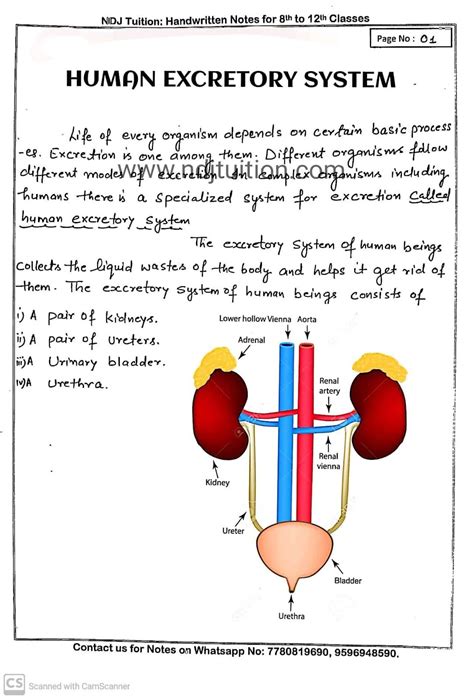 NDJ Tuition: Handwritten Notes for 8th to 12th Classes
Page No: 01
HUMAN EXCRETORY SYSTEM
Life of every organism depends on certain basic process
-es. Excretion is one among them. Different organisms follow
www.ndjtuition.com
different modes of excretion. In complex organisms including
humans there is a specialized system for excretion called
human excretory system
The excretory system of human beings
collects the liquid wastes of the body and helps it get rid of
them. The excretory system of human beings consists of
i) A pair of kidneys.
ii) A pair of ureters.
iii) A Urinary bladder.
iv) A Urethra.
Lower hollow Vienna Aorta
Adrenal
Renal
artery
Renal
vienna
Kidney
Ureter
Bladder
Urethra
Contact us for Notes on Whatsapp No: 7780819690, 9596948590.
CS Scanned with CamScanner